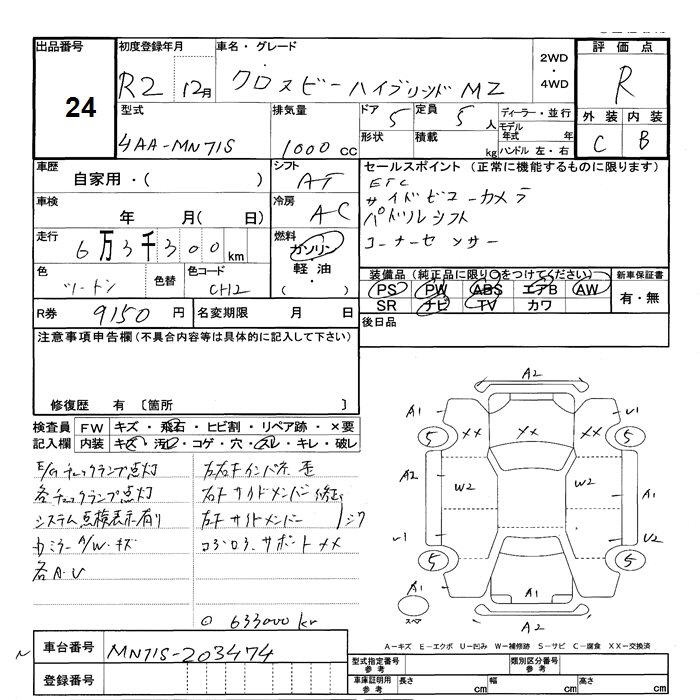 出品番号
24
初度登録年月
R2 12月
車名・グレード
クロスビー ハイブリッド MZ
2WD
・
4WD
評価点
R
型式
4AA-MN71S
排気量
1000 cc
ドア 5
定員 5 人
形状
積載 kg
ディーラー・並行
モデル年式 年
ハンドル 左・右
外装 内装
C B
車歴
自家用・( )
シフト
AT
車検
年 月( 日)
冷房
AC
走行
6万3千300 km
燃料
ガソリン
・
軽油
( ・ )
色
ツートン
色替
色コード
CH2
セールスポイント (正常に機能するものに限ります)
ETC
サイドビューカメラ
パドルシフト
コーナーセンサー
装備品 (純正品に限り○をつけてください)
PS PW ABS エアB AW
SR ナビ TV カワ
新車保証書
有・無
R券 9150 円
名変期限 月 日
後日品
注意事項申告欄(不具合内容等は具体的に記入して下さい)
修復歴 有 〔箇所 〕
検査員記入欄
FW キズ・飛石・ヒビ割・リペア跡・×要
内装 キズ・汚レ・コゲ・穴・スレ・キレ・破レ
E/Gチェックランプ点灯
各チェックランプ点灯
システム点検表示有り
カミラー A/W・キズ
各A・U
左右F インパネ 歪
右F サイドメンバー 修正
左F サイドメンバー シワ
コアロア サポート XX
◎ 633000 kr
A2
A1 XX XX U1
5 5
A2 W2 W2 A1
U1 U2
5 5
A1 A1 A1
スペア
A2
A-キズ E-エクボ U-凹み W-補修跡 S-サビ C-腐食 XX-交換済
車台番号
MN71S-203474
登録番号
型式指定番号 参考
類別区分番号 参考
車庫証明用 参考
長さ cm
幅 cm
高さ cm